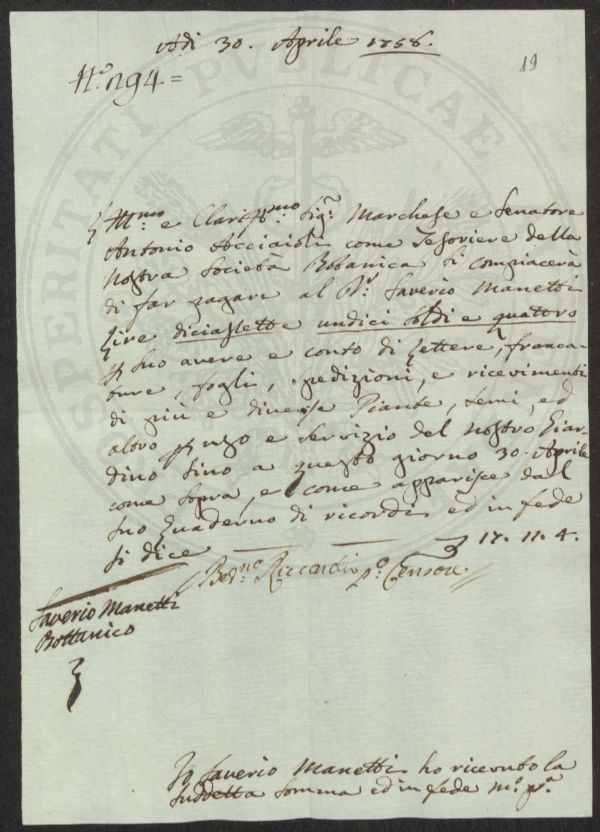 Adì 30. Aprile 1756.
19
N.º 194=
Ill.mo e Clariss.mo Sig.r Marchese e Senatore
Antonio Acciaioli come Tesoriere della
Nostra Società Botanica si compiacerà
di far pagare al D.r Saverio Manetti
Lire diciassette undici soldi e quattro
p suo avere e conto di Lettere, franca-
ture, fogli, spedizioni, e ricevimenti
di più e diverse Piante, semi, ed
altro p uso e servizio del nostro Giar-
dino sino a questo giorno 30. Aprile
come sopra, e come apparisce dal
suo Quaderno di ricordi ed in fede
si dice 17. 11. 4.
Riccardi P.º Censore
Saverio Manetti
Bottanico
Io Saverio Manetti ho ricevuto la
suddetta somma ed in fede m.º p.ª
SPERITATI PVBLICAE